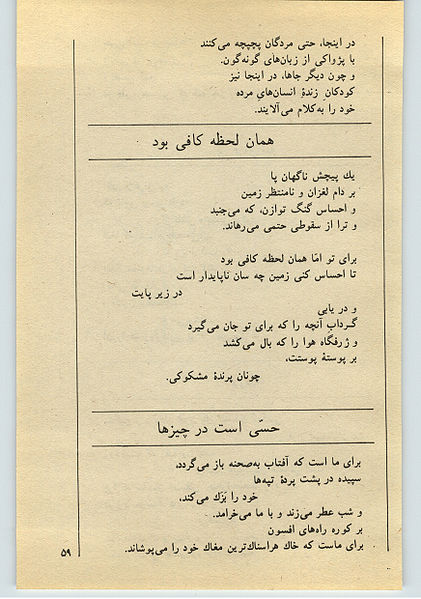 در اینجا، حتی مردگان پچپچه می‌کنند
با پژواکی از زبان‌های گونه‌گون.
و چون دیگر جاها، در اینجا نیز
کودکان زندهٔ انسان‌های مرده
خود را به‌کلام می‌آلایند.
همان لحظه کافی بود
یك پیچش ناگهان پا
بر دام لغزان و نامنتظر زمین
و احساس گنگ توازن، که می‌جنبد
و ترا از سقوطی حتمی می‌رهاند.
برای تو امّا همان لحظه کافی بود
تا احساس کنی زمین چه سان ناپایدار است
در زیر پایت
و در یابی
گرداب آنچه را که برای تو جان می‌گیرد
و ژرفگاه هوا را که بال می‌کشد
بر پوستهٔ پوستت،
چونان پرندهٔ مشکوکی.
حسّی است در چیزها
برای ما است که آفتاب به‌صحنه باز می‌گردد،
سپیده در پشت پردهٔ تپه‌ها
خود را بَزَك می‌کند،
و شب عطر می‌زند و با ما می‌خرامد.
بر کوره راه‌های افسون
برای ماست که خاك هراسناك‌ترین مغاك خود را می‌پوشاند.
۵۹